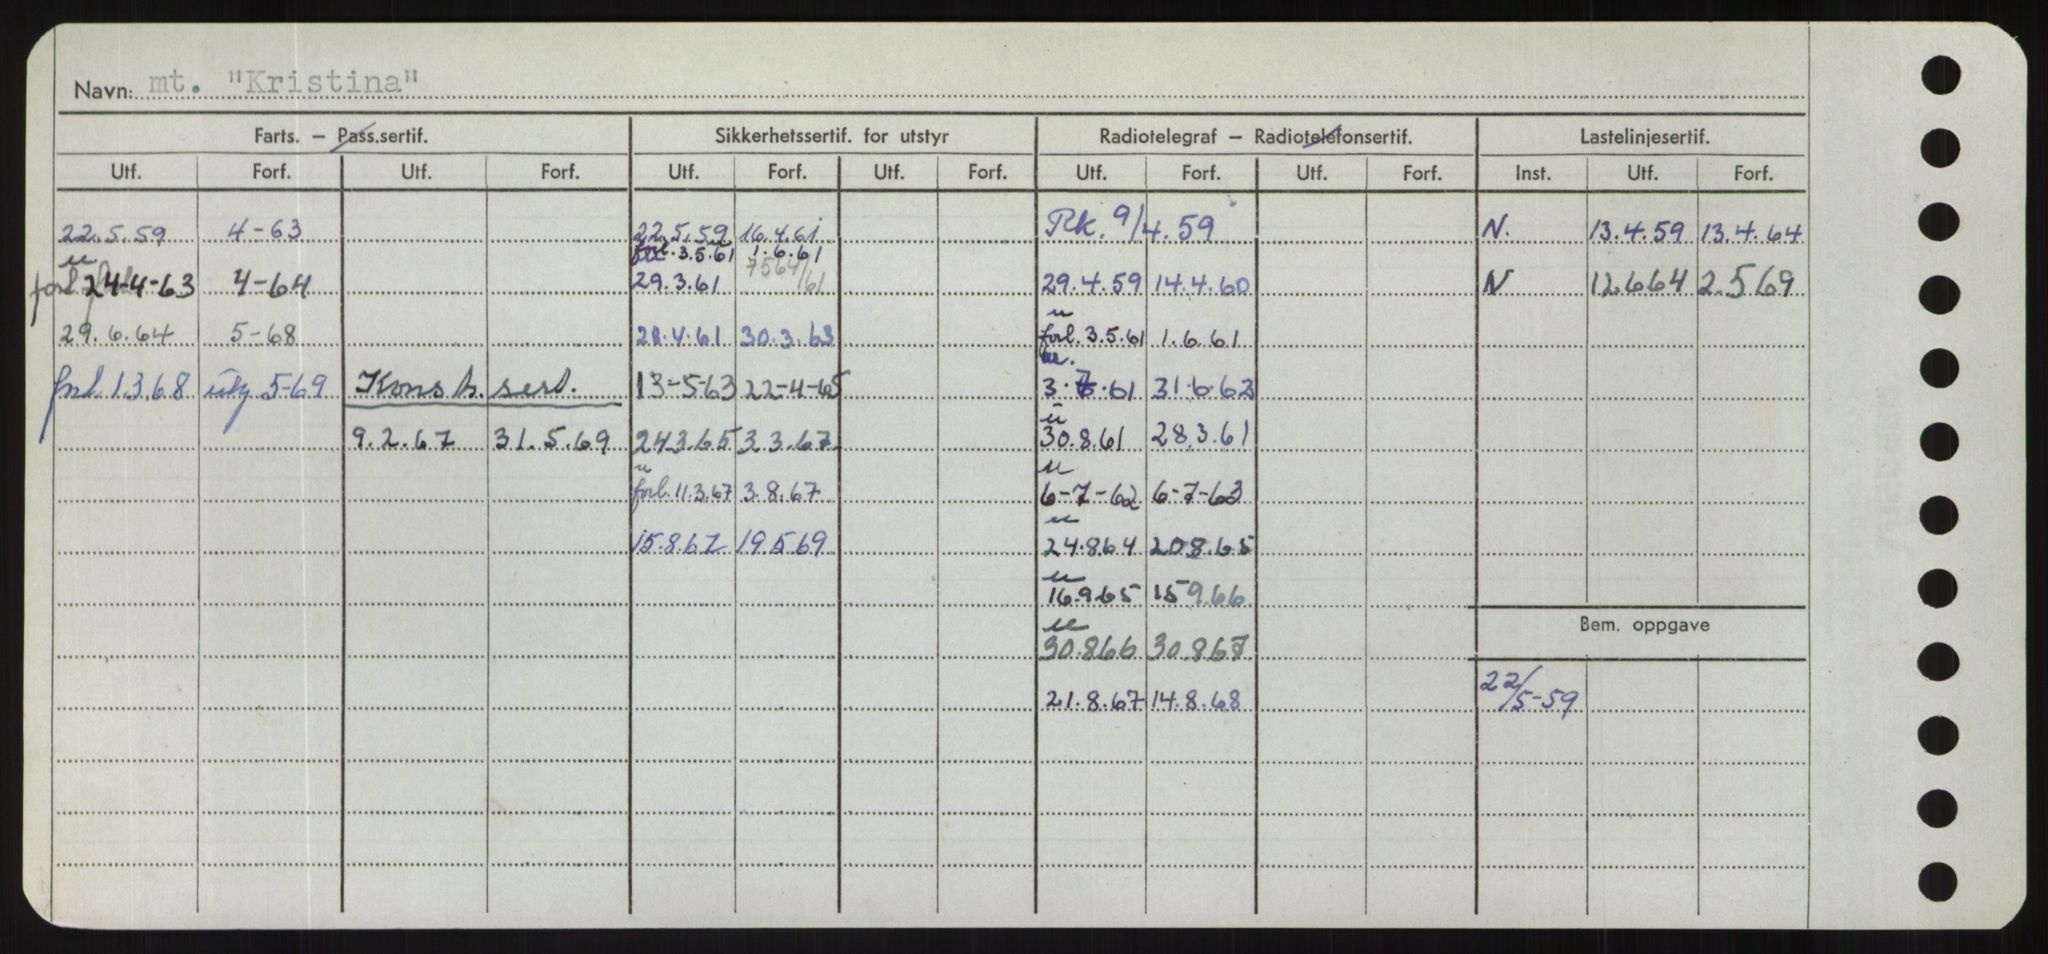 Navn: mt. "Kristina"
Farts. — Pass.sertif. Sikkerhetssertif. for utstyr Radiotelegraf — Radiotelefonsertif. Lastelinjesertif.
Utf. Forf. Utf. Forf. Utf. Forf. Utf. Forf. Utf. Forf. Utf. Forf. Inst. Utf. Forf.
22.5.59 4-63 22.5.59 16.4.61 Rk. 9/4.59 N. 13.4.59 13.4.64
u forl. 3.5.61 1.6.61
forl 24-4-63 4-64 29.3.61 7564/61 29.4.59 14.4.60 N 12.6.64 2.5.69
u
29.6.64 5-68 28.4.61 30.3.63 forl. 3.5.61 1.6.61
forl. 1.3.68 utg 5-69 Kons b. sert. 13-5-63 22-4-65 3.7.61 31.6.62
u
9.2.67 31.5.69 24.3.65 3.3.67 30.8.61 28.3.61
u u
forl. 11.3.67 3.8.67 6-7-62 6-7-63
u
15.8.67 19.5.69 24.8.64 20.8.65
u
16.9.65 15.9.66
u Bem. oppgave
30.8.66 30.8.67
21.8.67 14.8.68 22/5-59